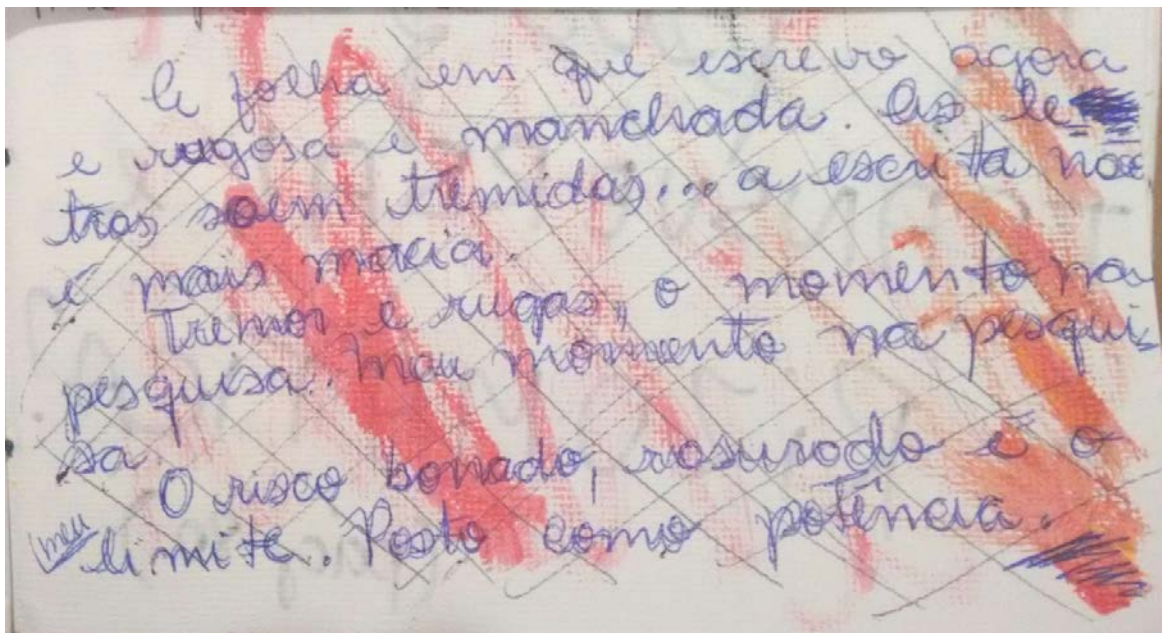 A folha em que escrevo agora
e rugosa e manchada. As le
tras saem tremidas... a escrita não
é mais macia.
Tremor e rugas, o momento na
pesquisa. Meu momento na pesqui
sa.
O risco borrado, rasurado é o
meu limite. Posto como potência.